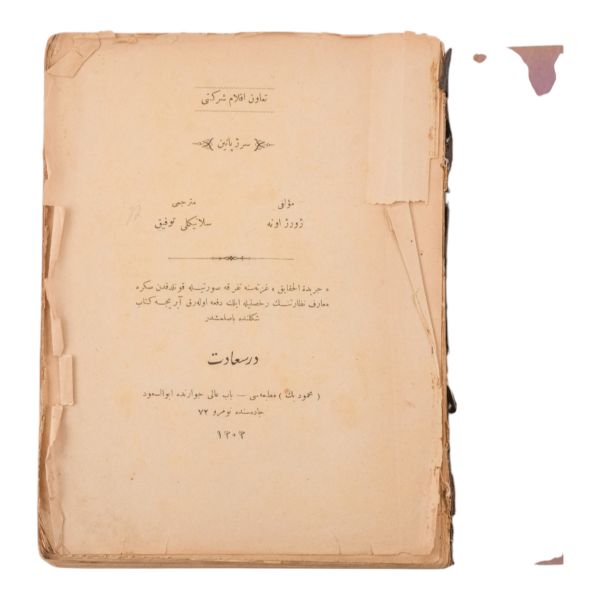 تعاون اقلام شركتی
سرژ پانین
مؤلفی
مترجمی
ژورژ اونه
سلانیكلی توفیق
« جریدة الحقایق » غزته‌سنه تفرقه صورتیله قونلدقدن صكره
معارف نظارتنك رخصتیله ایلك دفعه اوله‌رق آیریجه كتاب
شكلنده باصلمشدر
درسعادت
( محمود بك ) مطبعه‌سی — باب عالی جوارنده ابوالسعود
جاده‌سنده نومرو ٧٢
١٣٠٣